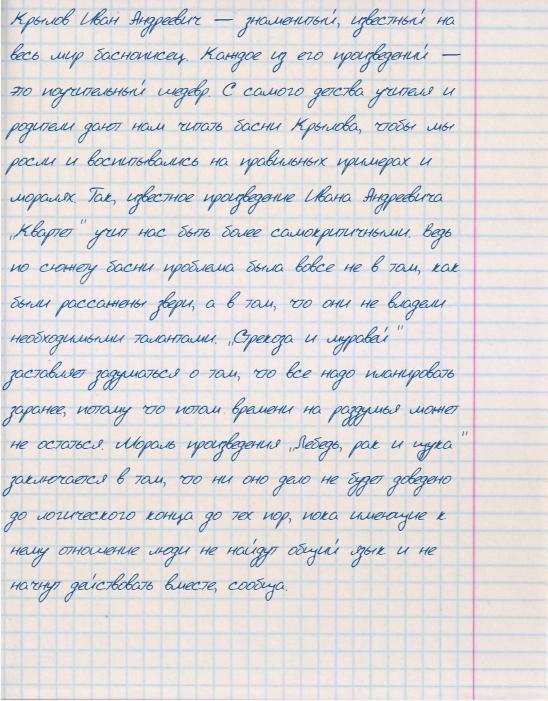 Крылов Иван Андреевич — знаменитый, известный на
весь мир баснописец. Каждое из его произведений —
это поучительный шедевр. С самого детства учителя и
родители дают нам читать басни Крылова, чтобы мы
росли и воспитывались на правильных примерах и
моралях. Так, известное произведение Ивана Андреевича
„Квартет" учит нас быть более самокритичными. Ведь
по сюжету басни проблема была вовсе не в том, как
были рассажены звери, а в том, что они не владели
необходимыми талантами. „Стрекоза и муравей"
заставляет задуматься о том, что все надо планировать
заранее, потому что потом времени на раздумья может
не остаться. Мораль произведения „Лебедь, рак и щука"
заключается в том, что ни оно дело не будет доведено
до логического конца до тех пор, пока имеющие к
нему отношение люди не найдут общий язык и не
начнут действовать вместе, сообща.